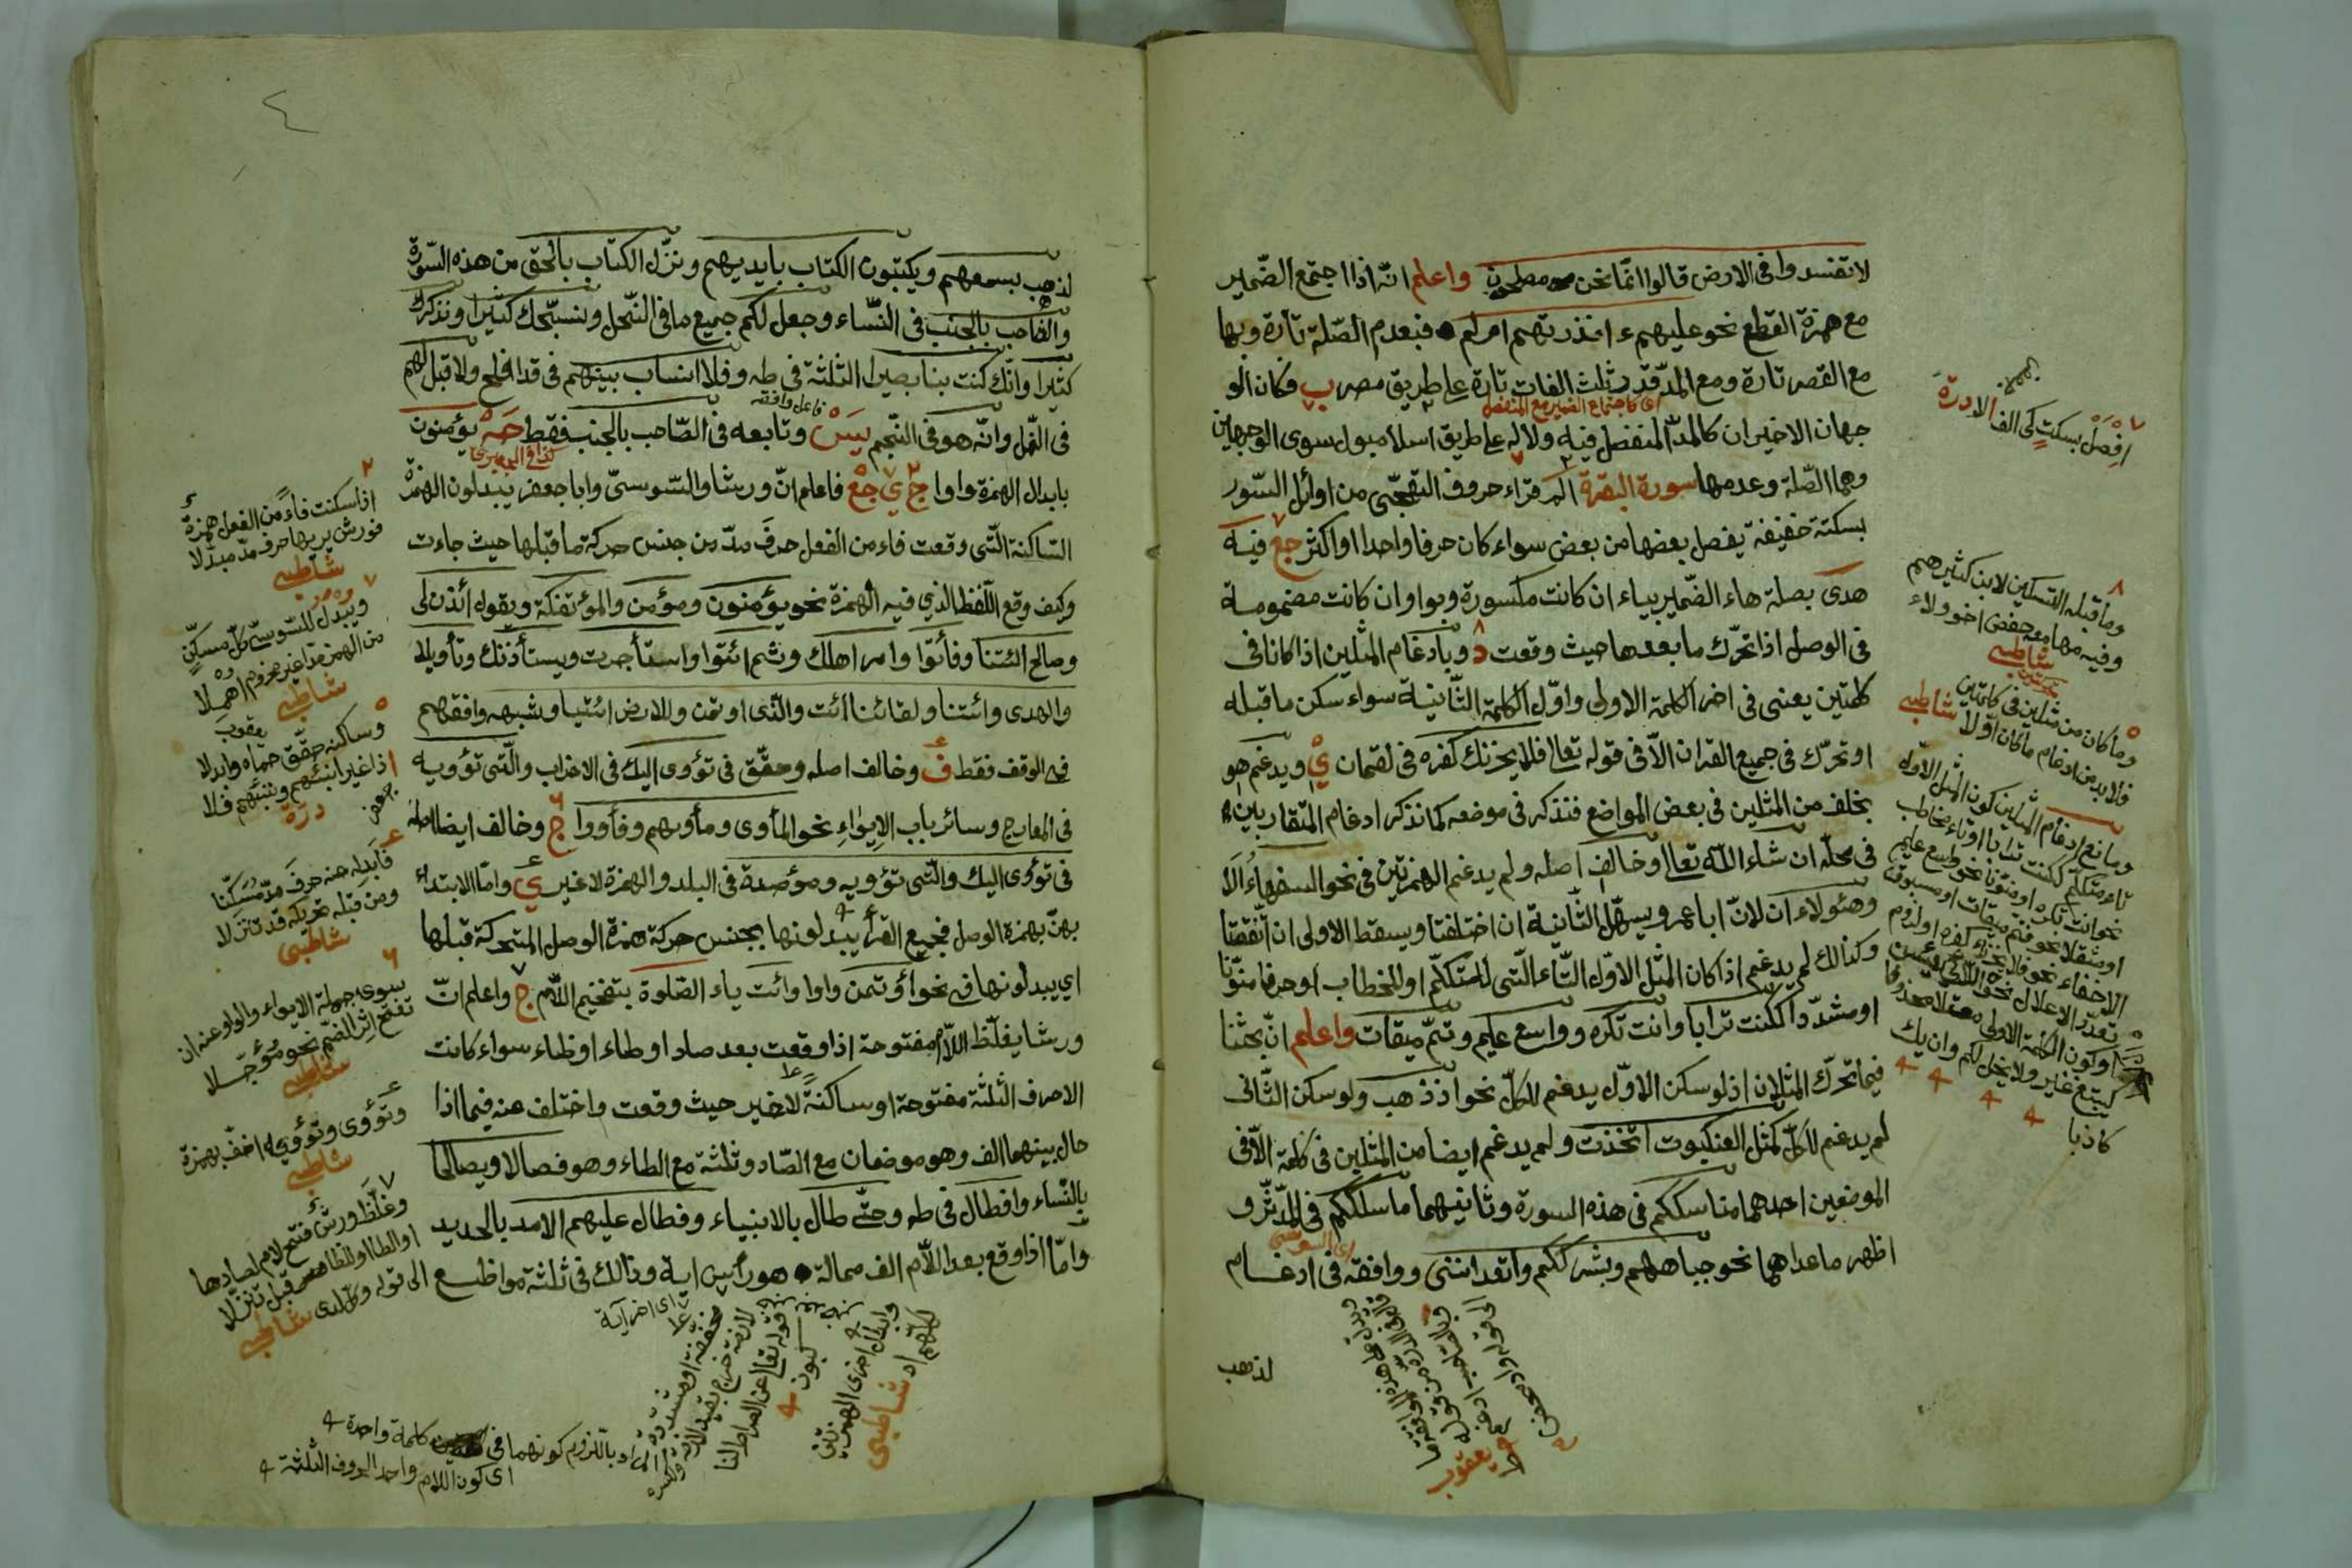 لا تفسدوا فى الارض قالوا انّما نحن مصلحون واعلم انّه اذا اجتمع الضّمير
مع همزة القطع نحو عليهم ءانذرتهم ام لم فبعدم الصّلة تارة وبها
مع القصر تارة ومع المدّ قدر ثلث الفات تارة على طريق مصر ب فكان الو
اى كاجتماع الضمير مع المنفصل
جهان الاخيران كالمدّ المنفصل فيه ولا له على طريق اسلامبول سوى الوجهين
وهما الصّلة وعدمها سورة البقرة الم قراء حروف التهجّى من اوائل السّور
بسكتة خفيفة يفصل بعضها من بعض سواء كان حرفا واحدا او اكثر جع فيه
هدى بصلة هاء الضّمير بياء ان كانت مكسورة وبواو ان كانت مضمومة
فى الوصل اذا تحرّك ما بعدها حيث وقعت د وبادغام المثلين اذا كانا فى
كلمتين يعنى فى اخر الكلمة الاولى واوّل الكلمة الثّانية سواء سكن ما قبله
او تحرّك فى جميع القران الّا فى قوله تعالى فلا يحزنك كفره فى لقمان ي ويدغم هو
بخلف من المثلين فى بعض المواضع فنذكر فى موضعه كما نذكر ادغام المتقاربين
فى محلّه ان شاء الله تعالى وخالف اصله ولم يدغم الهمزتين فى نحو السفهاء ألا
وهئولاء ان لانّ ابا عمرو يسهّل الثّانية ان اختلفتا ويسقط الاولى ان اتّفقتا
وكذالك لم يدغم اذا كان المثل الاوّل التّاء الّتى للمتكلّم او للخطاب او حرفا منوّنا
او مشدّدا ككنت ترابا وانت تكره وواسع عليم وتمّ ميقات واعلم انّ بحثنا
فيما تحرّك المثلان اذ لو سكن الاوّل يدغم للكلّ نحو اذ ذهب ولو سكن الثّانى
لم يدغم للكلّ كمثل العنكبوت اتّخذت ولم يدغم ايضا من المثلين فى كلمة الّا فى
الموضعين احدهما مناسككم فى هذه السورة وثانيهما ما سلككم فى المدّثّر و
اى السوسى
اظهر ما عداهما نحو جباههم وبشرككم واتعداننى ووافقه فى ادغام
لذهب
افصل بسكت كى الف الا درة
وما قبله التسكين لابن كثيرهم
وفيه مهانا معه حفص اخو ولاء
شاطبى
وما كان من مثلين فى كلمتين
فلا بد من ادغام ما كان اوّلا شاطبى
ومانع ادغام المثلين كون المثل الاوّل
تاء متكلم ككنت ترابا او تاء مخاطب
نحو انت تكره او منوّنا نحو واسع عليم
او مثقلا نحو فتمّ ميقات او مسبوقة
الاخفاء نحو فلا يحزنك كفره او لزوم
كيبتغ غير ولا يخل لكم وان يك
كاذبا
لذهب بسمعهم ويكتبون الكتاب بايديهم ونزّل الكتاب بالحق من هذه السّورة
والصّاحب بالجنب فى النّساء وجعل لكم جميع ما فى النّحل ونسبّحك كثيرا ونذكرك
كثيرا وانّك كنت بنا بصيرا الثلثة فى طه وفلا انساب بينهم فى قد افلح ولا قبل لهم
فاعل وافقه
فى النّمل وانّه هو فى النّجم يس وتابعه فى الصّاحب بالجنب فقط حه يؤمنون
بابدال الهمزة واوا ج ي جع فاعلم انّ ورشا والسّوسىّ وابا جعفر يبدلون الهمزة
السّاكنة الّتى وقعت فاء من الفعل حرف مدّ من جنس حركة ما قبلها حيث جاءت
وكيف وقع اللّفظ الذي فيه الهمزة نحو يؤمنون ومؤمن والمؤتفكة ويقول ائذن لى
وصالح ائتنا وفأتوا وامر اهلك وثم ائتوا واستأجرت ويستأذنك وتأويلا
والهدى وائتنا ولقائنا ائت والّذى اوتمن وللارض ائتيا وشبهه وافقهم
فى الوقف فقط ف وخالف اصله وحقّق فى تؤوى اليك فى الاحزاب والّتى تؤويه
فى المعارج وسائر باب الايواء نحو المأوى ومأويهم وفأووا ج وخالف ايضا اصله
فى تؤوى اليك والّتى تؤويه ومؤصدة فى البلد والهمزة لا غير ي وامّا الابتداء
بهنّ بهمزة الوصل فجميع القرّاء يبدلونها بجنس حركة همزة الوصل المتحركة قبلها
اي يبدلونها فى نحو اؤتمن واوا وائت ياء الصّلوة بتفخيم اللّام ج واعلم انّ
ورشا يغلّظ اللّام مفتوحة اذا وقعت بعد صاد او طاء او ظاء سواء كانت
الاحرف الثلثة مفتوحة او ساكنة لا غير حيث وقعت واختلف عنه فيما اذا
حال بينهما الف وهو موضعان مع الصّاد وثلثة مع الطاء وهو فصالا ويصالحا
بالنّساء وافطال فى طه وحتّى طال بالانبياء وفطال عليهم الامد بالحديد
وامّا اذا وقع بعد اللّام الف ممالة هو رأس اية وذالك فى ثلثة مواضع
اذا سكنت فاء من الفعل همزة
فورش يريها حرف مدّ مبدّلا
شاطبى
ويبدل للسّوسى كلّ مسكّن
من الهمز مدّا غير مجزوم اهملا
شاطبى
وساكنه حقّق حماه وابدلا
اذا غير انبئهم ونبّئهم فلا
درّة
فأبدله عنه حرف مدّ مسكّنا
ومن قبله تحريكه قد تنزّلا
شاطبى
سوى جملة الايواء والواو عنه ان
تفتّح اثر الضّمّ نحو مؤجّلا
شاطبى
وتؤوى وتؤويه اخفّ بهمزة
شاطبى
وغلّظ ورش فتح لام لصادها
او الطاء او للظاء قبل تنزّلا
شاطبى
اى اخر آية
باللزوم كونهما فى كلمة واحدة
اى كون اللام واحد الحروف الثلثة